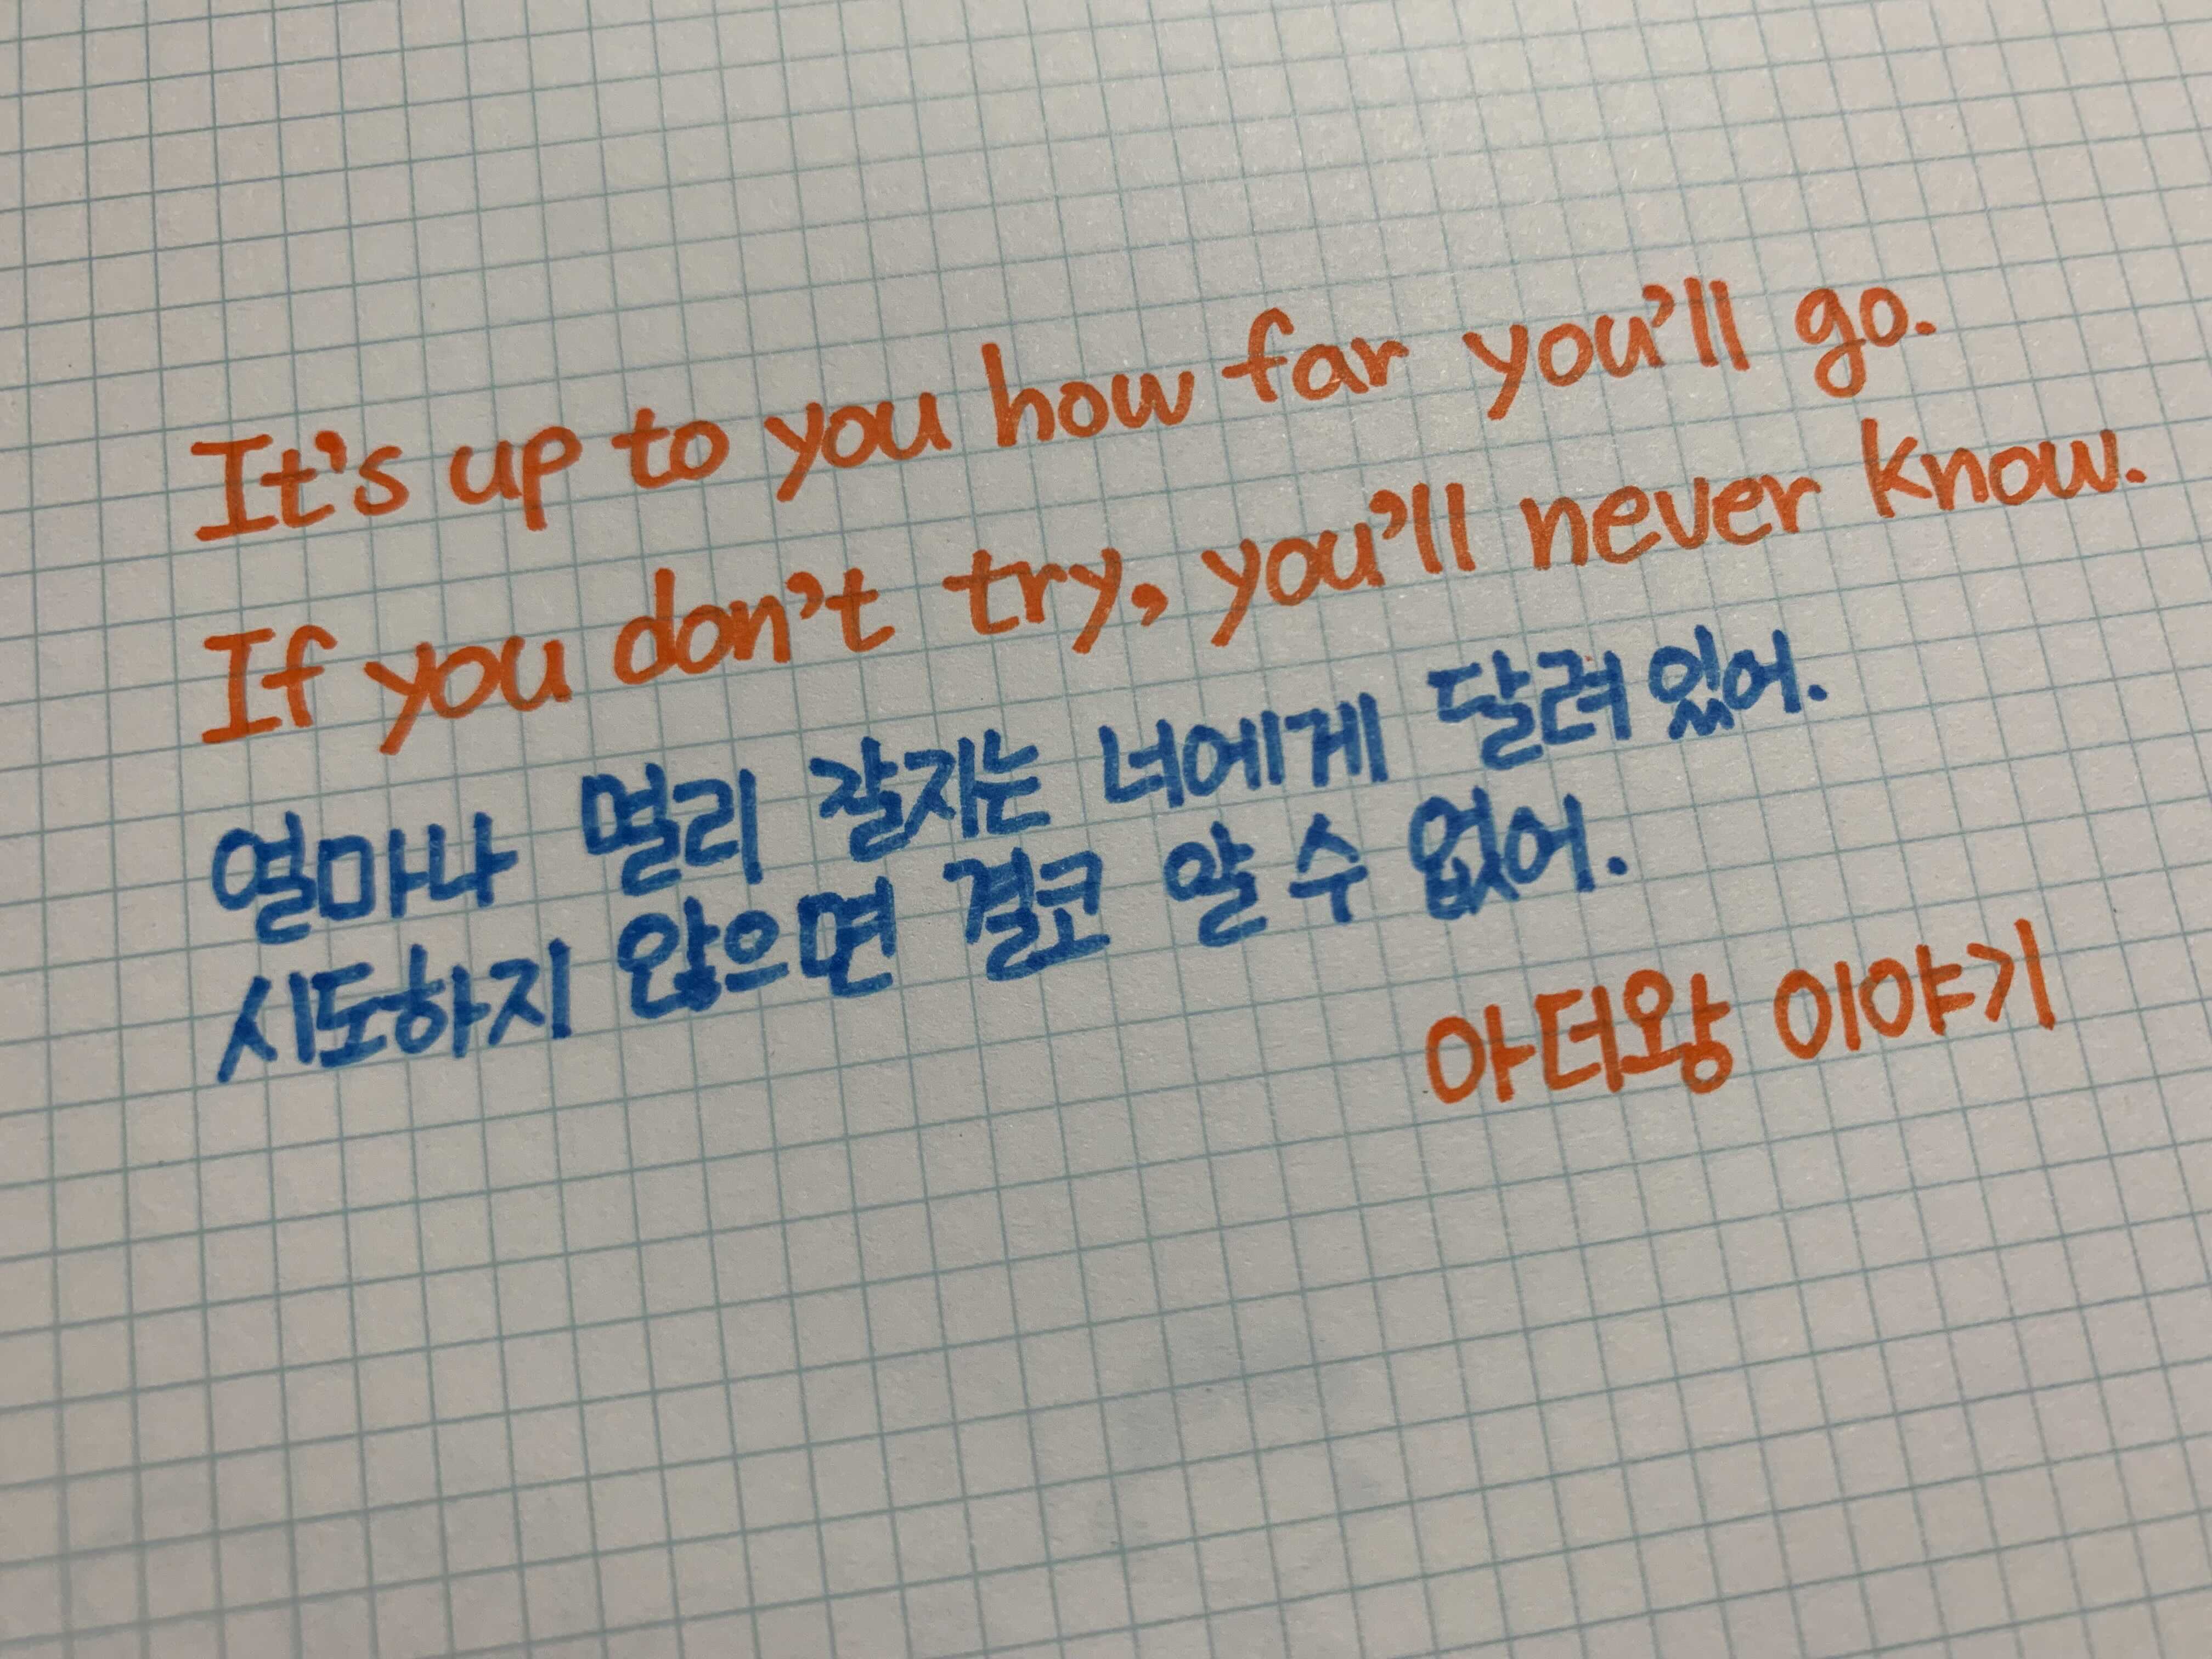 It's up to you how far you'll go.
If you don't try, you'll never know.
얼마나 멀리 갈지는 너에게 달려 있어.
시도하지 않으면 결코 알 수 없어.
아더왕 이야기